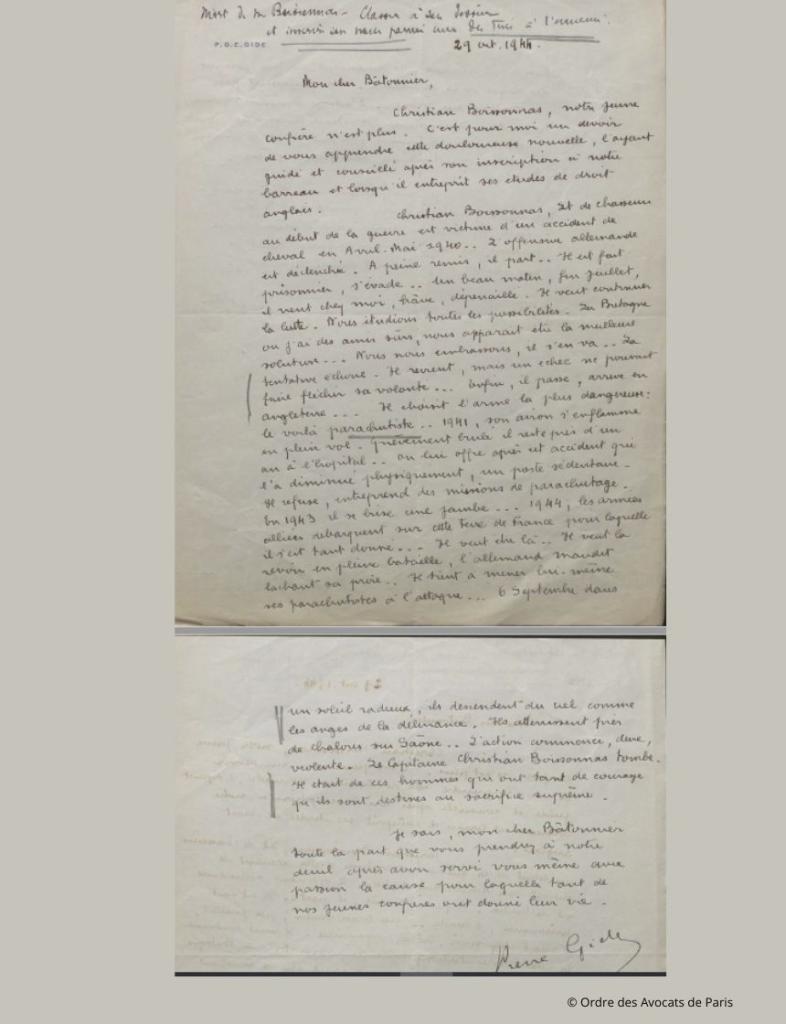 Mort de M Boissonnas - Classer à son dossier
et inscrire son nom parmi ceux des Tués à l'ennemi.
P.O.E.GIDE
29 oct. 1944.
Mon cher Bâtonnier,
Christian Boissonnas, notre jeune
confrère n'est plus. C'est pour moi un devoir
de vous apprendre cette douloureuse nouvelle, l'ayant
guidé et conseillé après son inscription à notre
barreau et lorsqu'il entreprit ses études de droit
anglais.
Christian Boissonnas, Lt de chasseurs
au début de la guerre est victime d'un accident de
cheval en Avril-Mai 1940.. L'offensive allemande
est déclenchée. A peine remis, il part.. Il est fait
prisonnier, s'évade.. Un beau matin, fin Juillet,
il vient chez moi, hâve, dépenaillé. Il veut continuer
la lutte. Nous étudions toutes les possibilités. La Bretagne
où j'ai des amis sûrs, nous apparait être la meilleure
solution... Nous nous embrassons, il s'en va.. La
tentative échoue. Il revient, mais un échec ne pouvait
faire fléchir sa volonté... Enfin, il passe, arrive en
angleterre... Il choisit l'arme la plus dangereuse:
le voilà parachutiste.. 1941, son avion s'enflamme
en plein vol. Grièvement brulé il reste près d'un
an à l'hopital.. on lui offre après cet accident qui
l'a diminué physiquement, un poste sédentaire.
Il refuse, entreprend des missions de parachutage.
En 1943 il se brise une jambe... 1944, les armées
alliées débarquent sur cette Terre de France pour laquelle
il s'est tant donné... Il veut être là.. Il veut la
revoir en pleine bataille, l'allemand maudit
lachant sa proie.. Il tient à mener lui-même
ses parachutistes à l'attaque... 6 Septembre dans
un soleil radieux, ils descendent du ciel comme
les anges de la délivrance. Ils atterrissent près
de Chalons sur Saône.. L'action commence, dure,
violente. Le Capitaine Christian Boissonnas tombe.
Il était de ces hommes qui ont tant de courage
qu'ils sont destinés au sacrifice suprême.
Je sais, mon cher Bâtonnier
toute la part que vous prendrez à notre
deuil après avoir servi vous même avec
passion la cause pour laquelle tant de
nos jeunes confrères ont donné leur vie.
Pierre Gide
© Ordre des Avocats de Paris